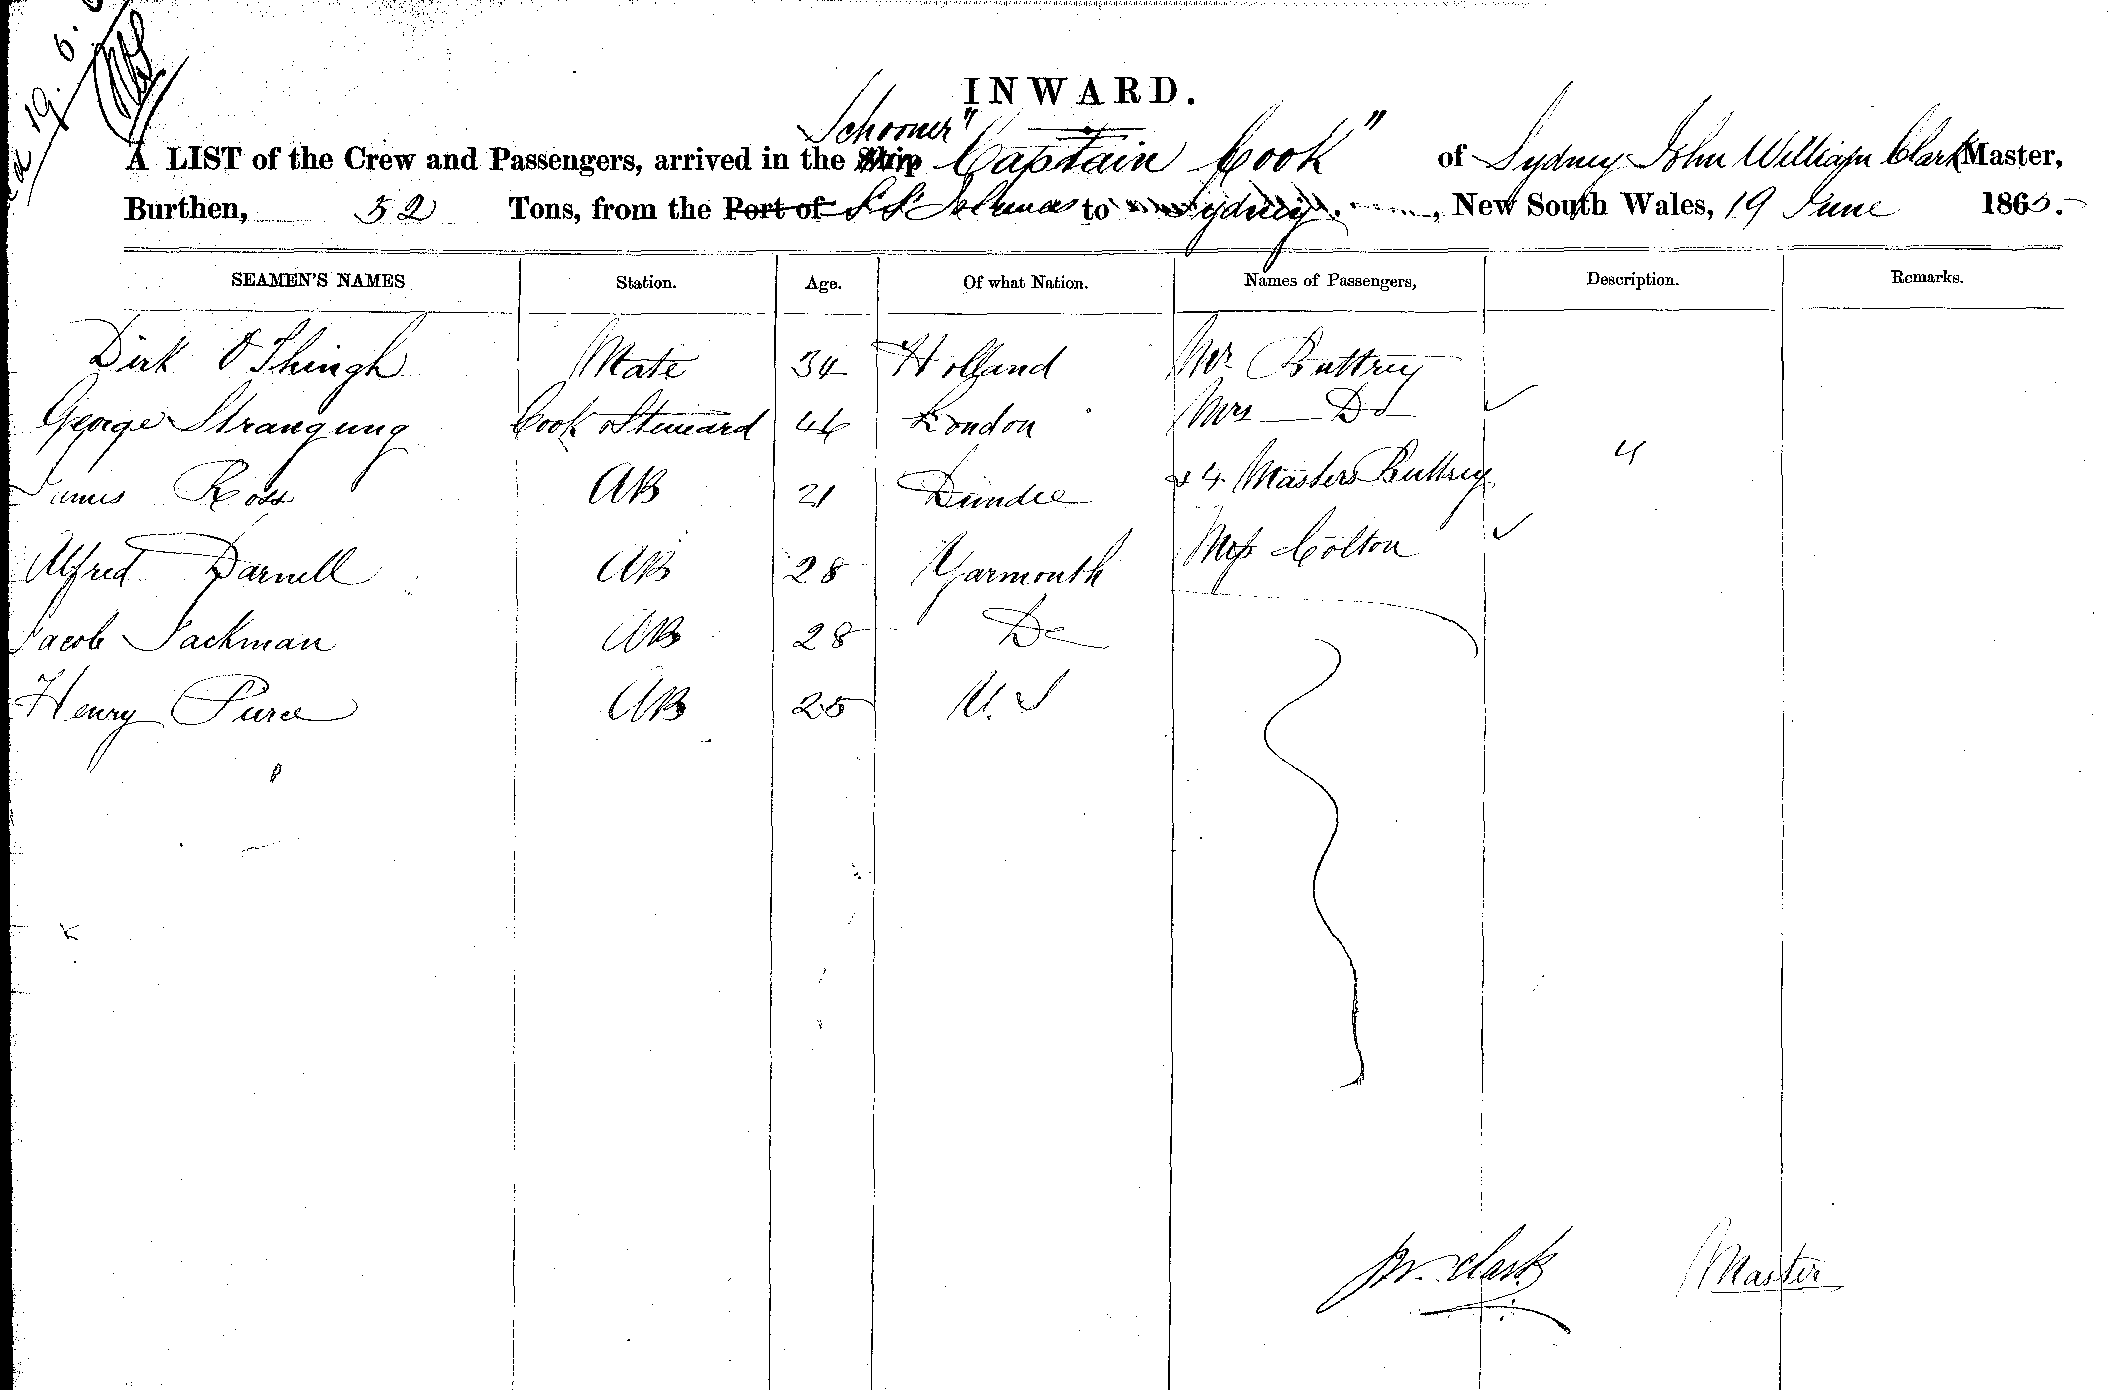 19. 6.
INWARD.
Schooner
A LIST of the Crew and Passengers, arrived in the Ship "Captain Cook" of Sydney John William Clark Master,
Burthen, 52 Tons, from the Port of S S Islands to Sydney, New South Wales, 19 June 1865.
SEAMEN'S NAMES Station. Age. Of what Nation. Names of Passengers, Description. Remarks.
Dirk O Shingh Mate 34 Holland Mr Buttrey
George Cook & Steward 46 London Mrs Do
James Ross AB 21 Dundee & 4 Masters Buttrey
Alfred Darnell AB 28 Yarmouth Miss Colton
Jacob Jackman AB 28 Do
Henry Purce AB 25 U.S
J W. Clark Master